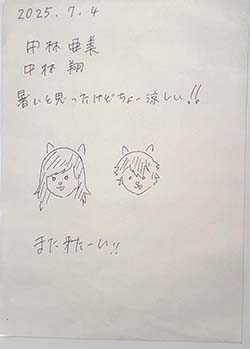 2025.7.4
中林亜美
中林翔
暑いと思ったけどちょー涼しい!!
また来たーい!!